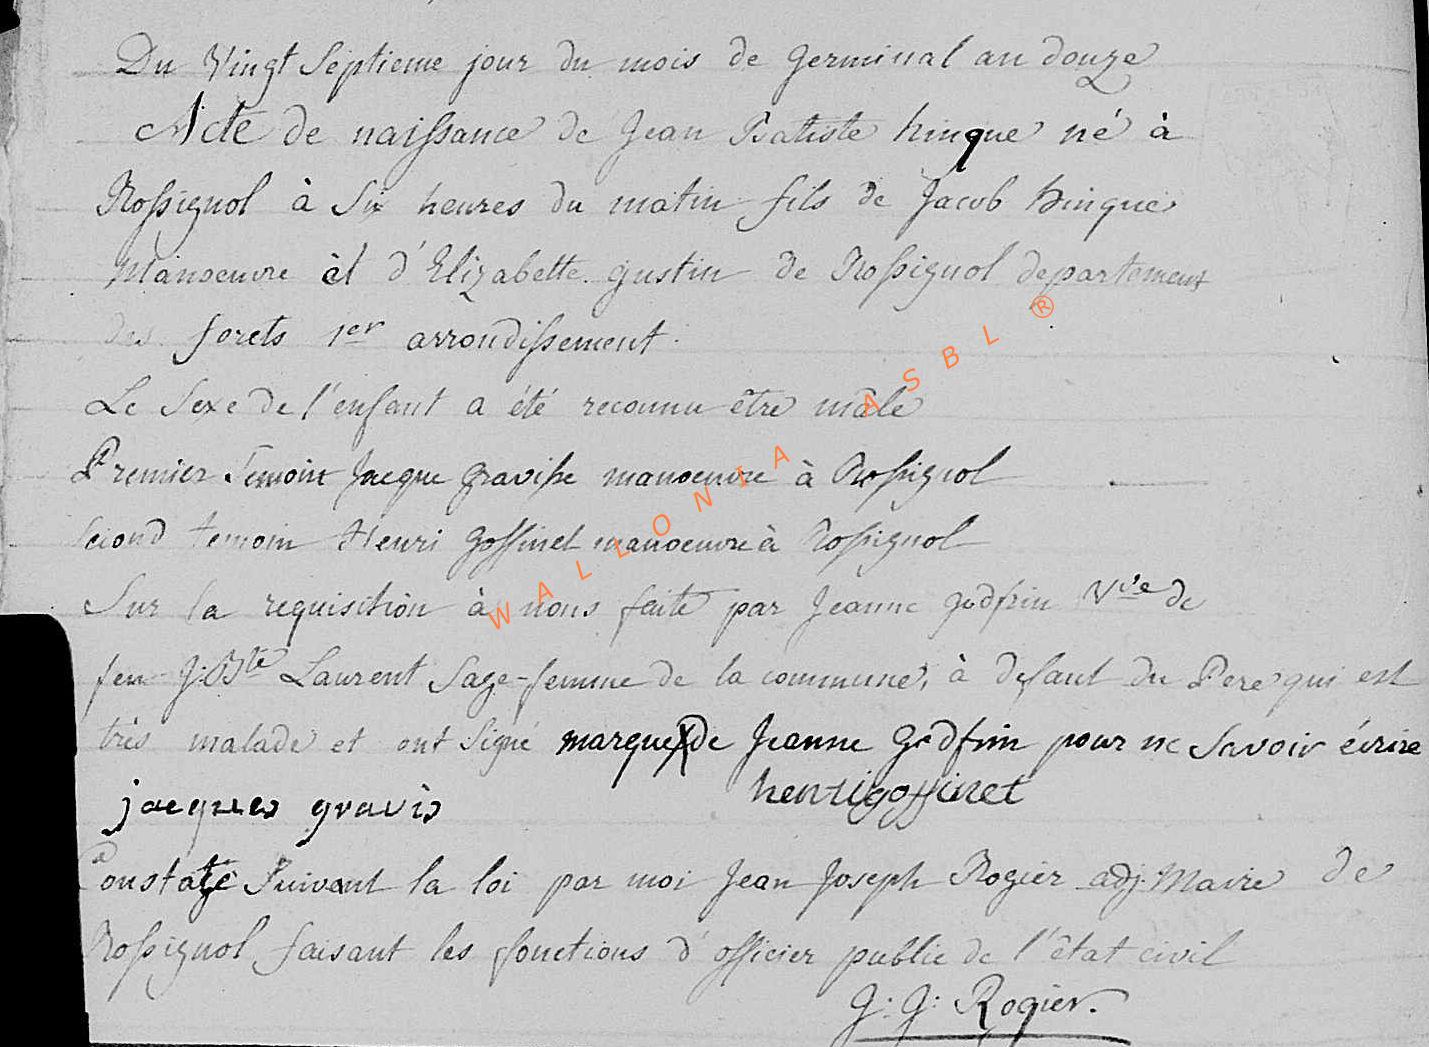 Du Vingt Septieme jour du mois de germinal an douze
Acte de naissance de Jean Batiste hinque né à
Rossignol à Six heures du matin fils de Jacob hinque
Manoeuvre èt d'Elizabette gustin de Rossignol departement
des forets 1er arrondissement.
Le Sexe de l'enfant a été reconnu être mâle
Premier Temoin Jacque gravisse manoeuvre à Rossignol
second temoin Henri goffinet manoeuvre à Rossignol
Sur la requisition à nous faite par Jeanne godfrin Vve de
feu J: Bte Laurent Sage-femme de la commune, à defaut du Pere qui est
très malade et ont Signé marque X de Jeanne Godfrin pour ne Savoir écrire
jacques gravis henri goffinet
Constaté Suivant la loi par moi Jean Joseph Rogier adj. Maire de
Rossignol faisant les fonctions d'officier public de l'état civil
J: J: Rogier.
WALLONIA ASBL ®